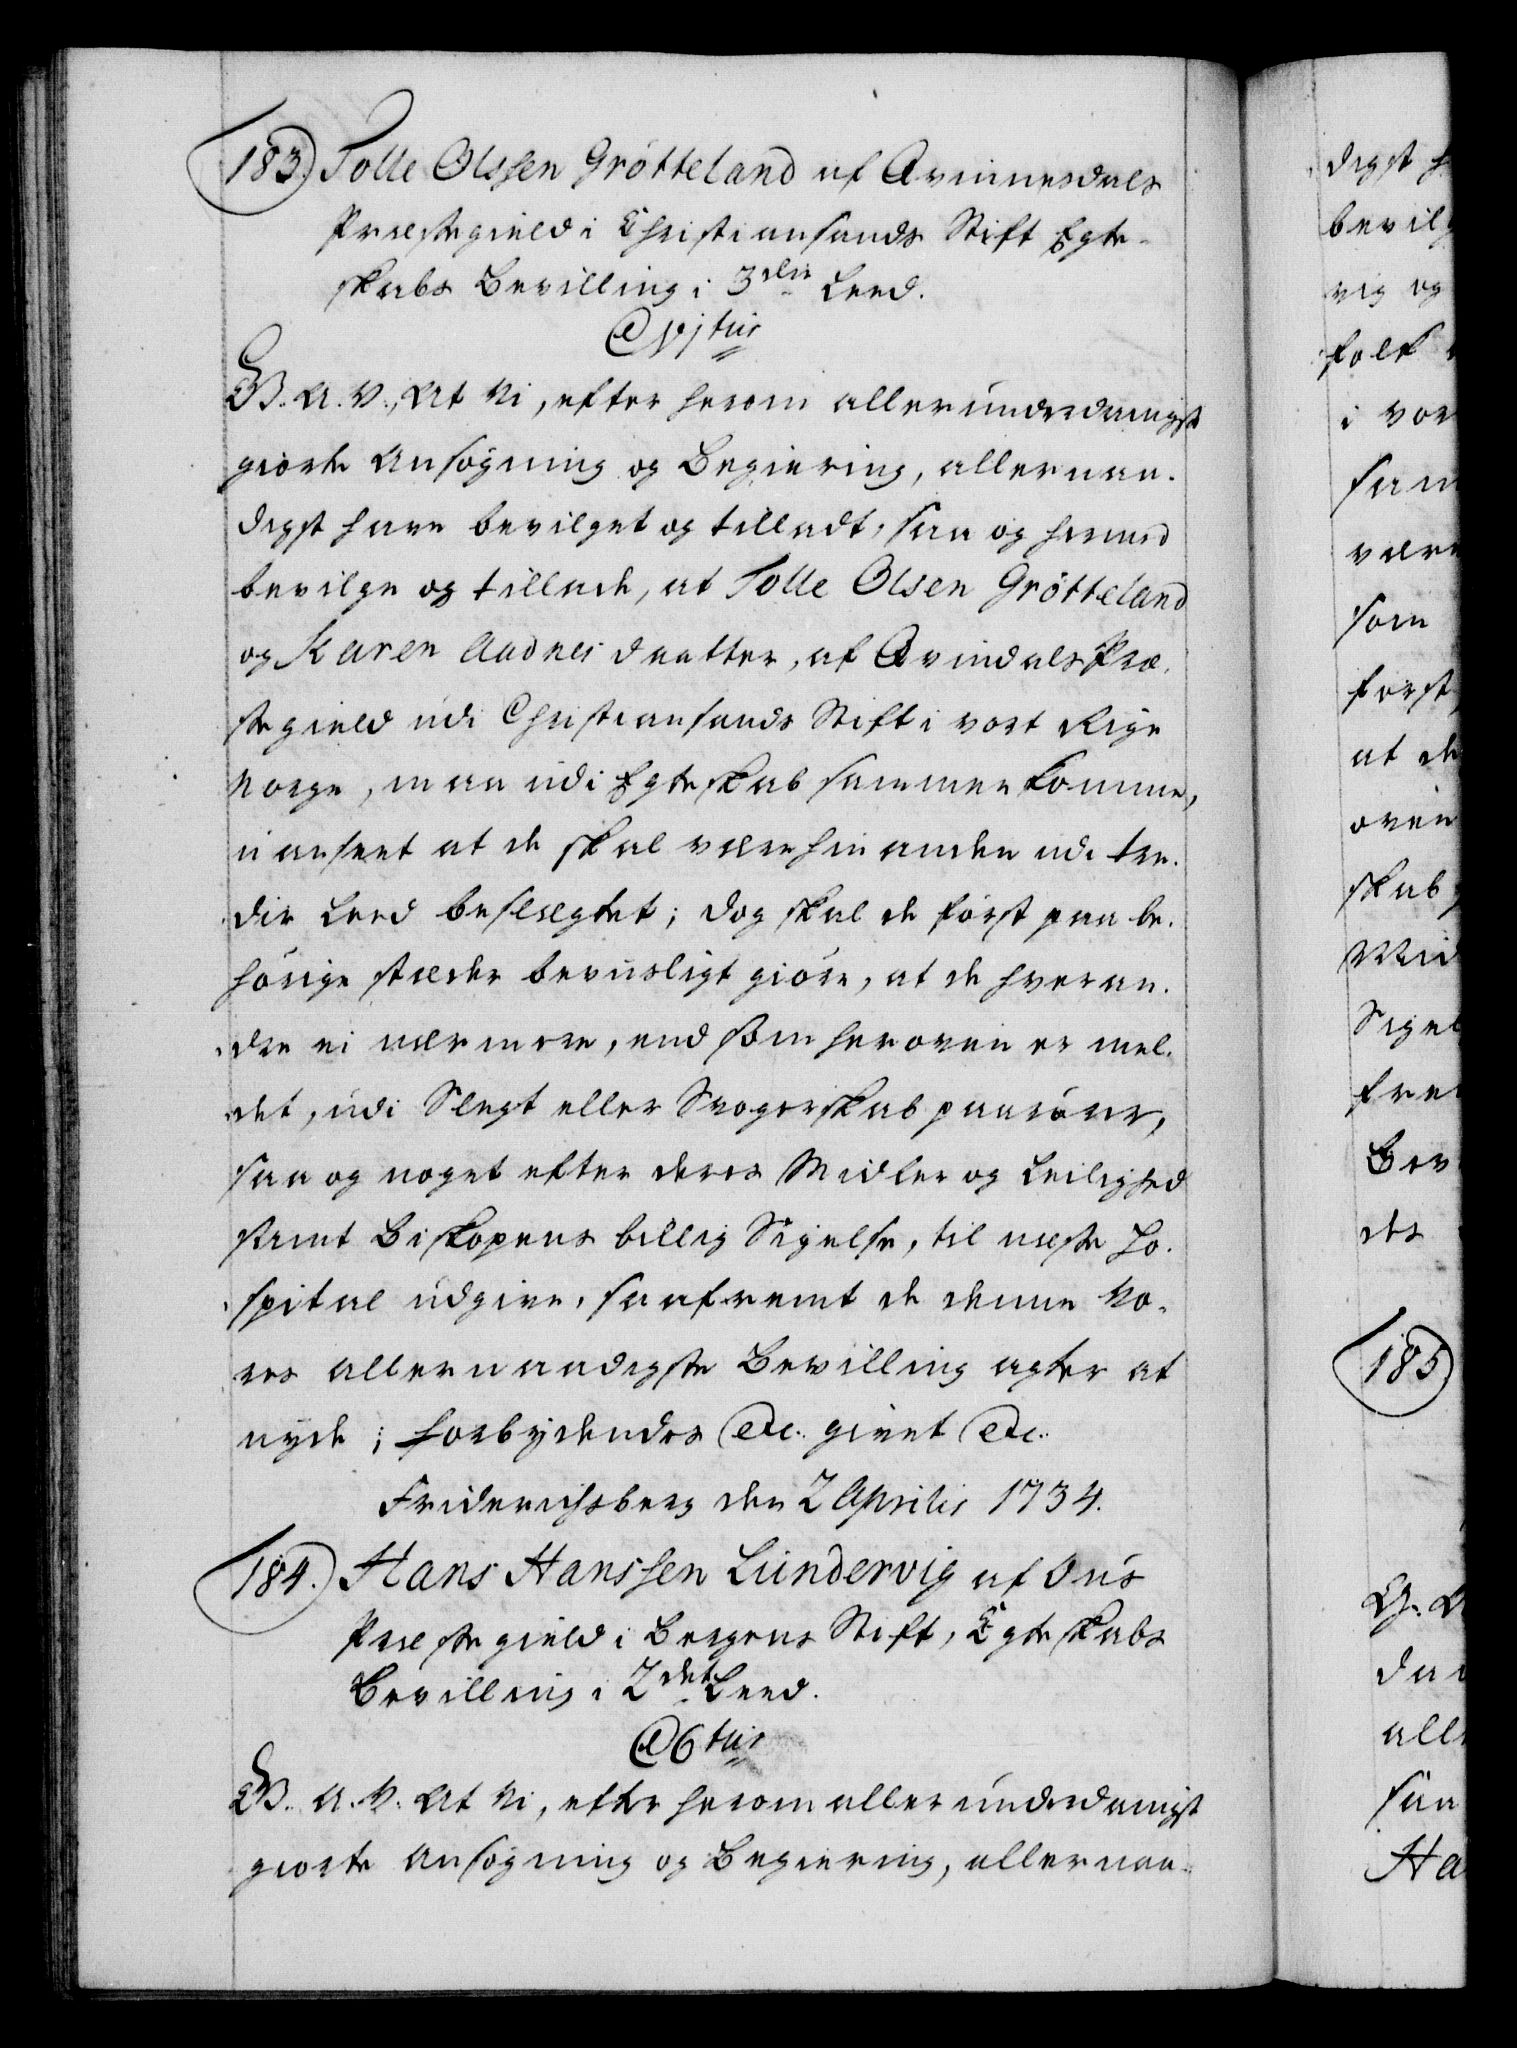 183. Tolle Olssen Grötteland af Qvinnesdals
Præstegield i Christiansands Stift Egte-
skabs Bevilling i 3die Leed.
G. A. V., At Vi, efter herom allerunderdanigst
giorte Ansøgning og Begiering, allernaa-
digst have bevilget og tilladt, saa og hermed
bevilge og tillade, at Tolle Olsen Grötteland
og Karen Aadnes daatter, af Qvindals Præ-
stegield udi Christiansands Stift i vort Rige
Norge, maa udi Egteskab sammenkomme,
uanseet at de skal være hinanden udi tre-
die Leed beslægtet; dog skal de først paa be-
hørige stæder beviisligt giøre, at de hveran-
dre ei nærmere, end som heroven er mel-
det, udi Slegt eller Svogerskab paarører,
saa og noget efter deres Midler og Leilighed
samt Biskopens billig Sigelse, til næste Ho-
spital udgive, saafremt de denne Vo-
res allernaadigste Bevilling agter at
nyde; Forbydendes etc. givet etc.
Friderichsberg den 2 Aprilis 1734.
184. Hans Hanssen Lundervig af Ous
Præstegield i Bergens Stift, Egteskabs
Bevilling i 2det Leed.
G. A. V. At Vi, efter herom allerunderdanigst
giorte Ansøgning og Begiering, allernaa-
digst h
bevilg
vig og
folk
i vor
sam
være
som
først
at de
oven
skab
Mid
Sigel
frem
Bev
des
185
G. A
da
alle
saa
Ha